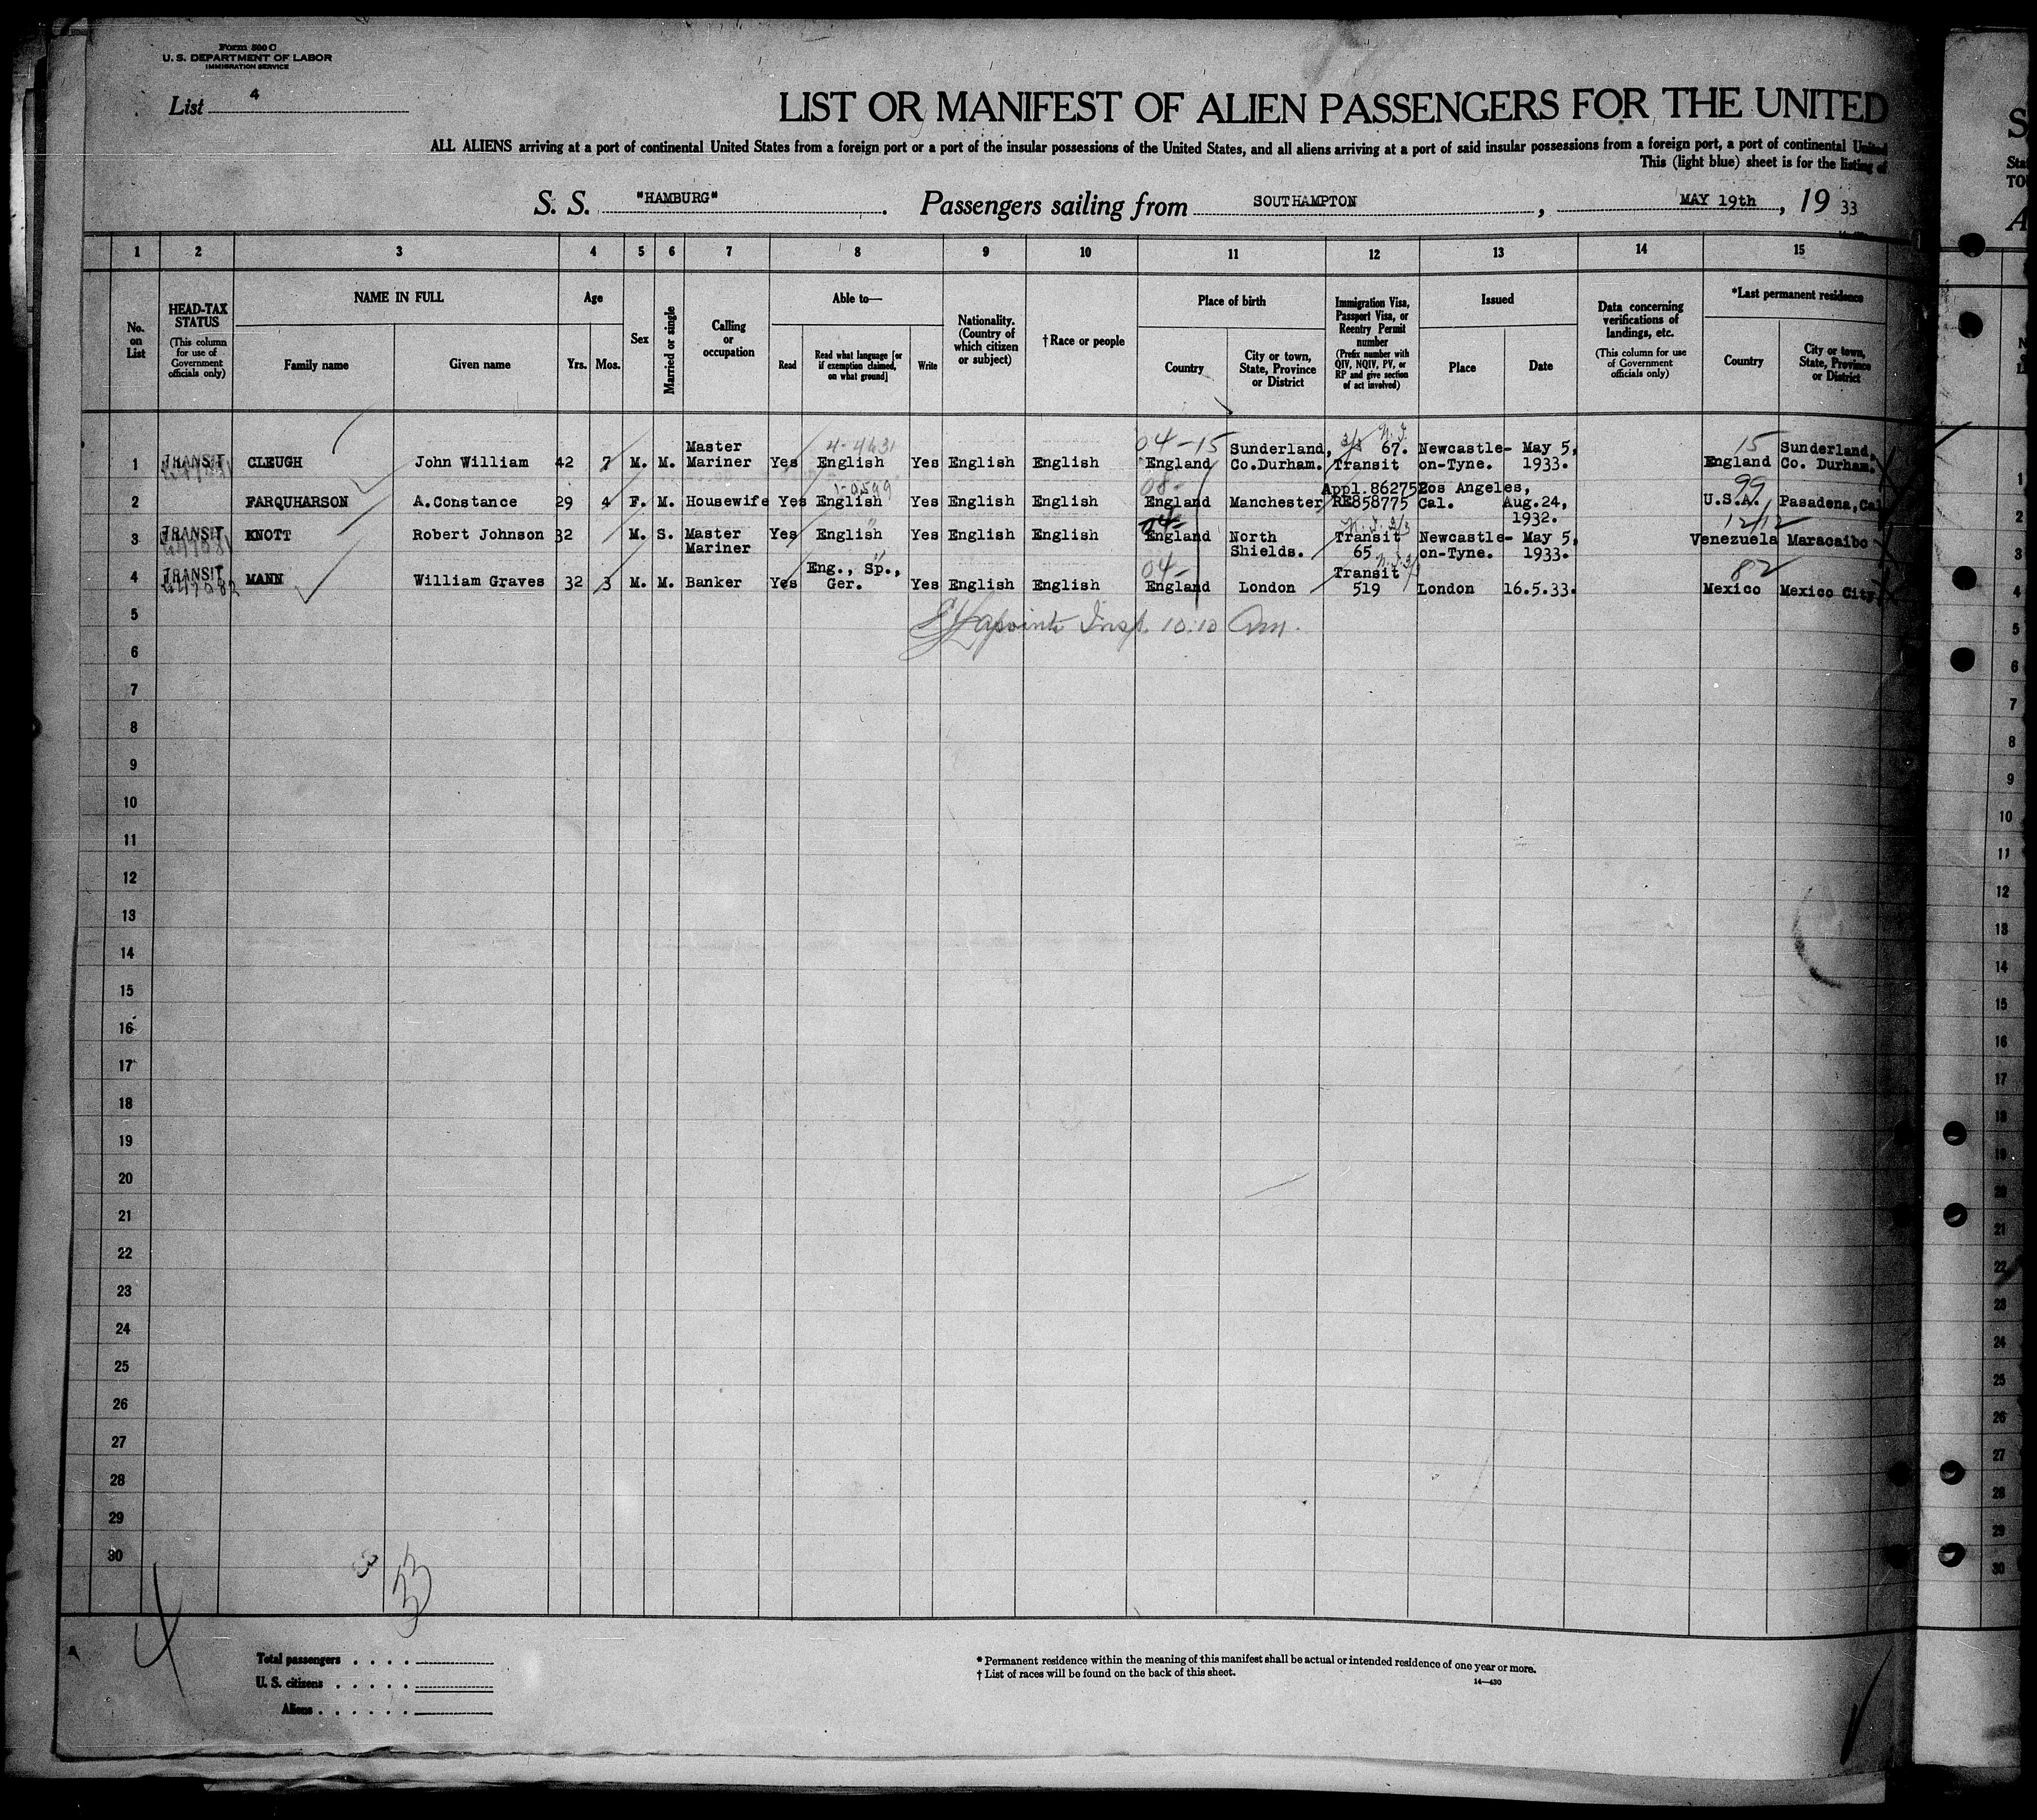 Form 500 C
U. S. DEPARTMENT OF LABOR
IMMIGRATION SERVICE
List 4
LIST OR MANIFEST OF ALIEN PASSENGERS FOR THE UNITED
ALL ALIENS arriving at a port of continental United States from a foreign port or a port of the insular possessions of the United States, and all aliens arriving at a port of said insular possessions from a foreign port, a port of continental United
This (light blue) sheet is for the listing of
S. S. "HAMBURG". Passengers sailing from SOUTHAMPTON, MAY 19th, 19 33
1 2 3 4 5 6 7 8 9 10 11 12 13 14 15
No. on List
HEAD-TAX STATUS (This column for use of Government officials only)
NAME IN FULL
Family name
Given name
Age
Yrs. Mos.
Sex
Married or single
Calling or occupation
Able to—
Read
Read what language [or if exemption claimed, on what ground]
Write
Nationality. (Country of which citizen or subject)
†Race or people
Place of birth
Country
City or town, State, Province or District
Immigration Visa, Passport Visa, or Reentry Permit number (Prefix number with QIV, NQIV, PV, or RP and give section of act involved)
Issued
Place
Date
Data concerning verifications of landings, etc. (This column for use of Government officials only)
*Last permanent residence
Country
City or town, State, Province or District
1 TRANSIT CLEUGH John William 42 7 M. M. Master Mariner Yes English Yes English English England Sunderland, Co.Durham. 67. Transit Newcastle-on-Tyne. May 5, 1933. England Sunderland, Co. Durham.
4-4631
04-15
15
2 FARQUHARSON A.Constance 29 4 F. M. Housewife Yes English Yes English English England Manchester Appl.862752 RE858775 Los Angeles, Cal. Aug.24, 1932. U.S.A. Pasadena, Cal
1-0599
08-
99
3 TRANSIT KNOTT Robert Johnson 32 M. S. Master Mariner Yes English Yes English English England North Shields. Transit 65 Newcastle-on-Tyne. May 5, 1933. Venezuela Maracaibo
04-
12/12
4 TRANSIT MANN William Graves 32 3 M. M. Banker Yes Eng., Sp., Ger. Yes English English England London Transit 519 London 16.5.33. Mexico Mexico City
04-
82
Insp. 10:10 Am.
5
6
7
8
9
10
11
12
13
14
15
16
17
18
19
20
21
22
23
24
25
26
27
28
29
30
4
Total passengers
U. S. citizens
Aliens
* Permanent residence within the meaning of this manifest shall be actual or intended residence of one year or more.
† List of races will be found on the back of this sheet.
14—430